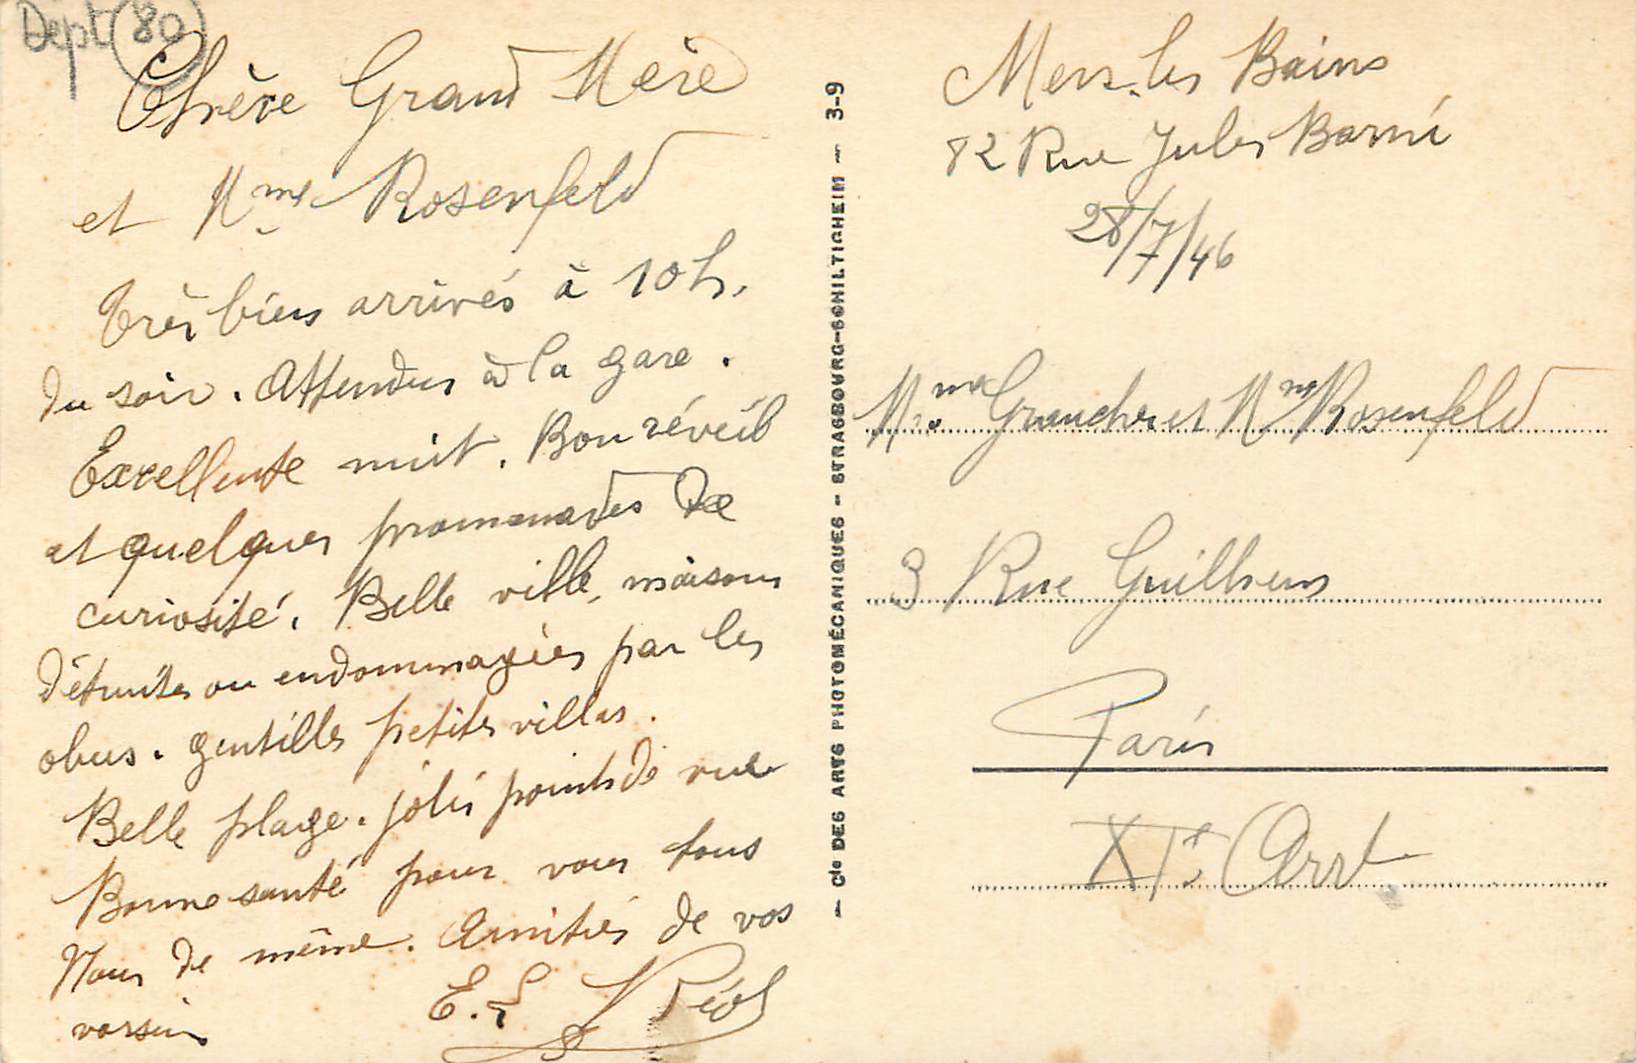 Dept 80
Chère Grand Mère
et Mme Rosenfeld
très bien arrivés à 10 h.
du soir. Attendus à la gare.
Excellente nuit. Bon réveil
et quelques promenades de
curiosité. Belle ville, maisons
détruites ou endommagées par les
obus. gentilles petites villas.
Belle plage. jolis points de vue
Bonne santé pour vous tous
Nous de même. Amitiés de vos
E. L.
- Cie DES ARTS PHOTOMÉCANIQUES - STRASBOURG-SCHILTIGHEIM - 3-9
Mers-les Bains
82 Rue Jules Barni
28/7/46
Mme et Mme Rosenfeld
3 Rue Guilhem
Paris
XIe Arrt